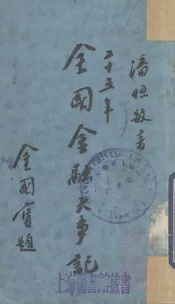 潘恒敏著
二十五年
全國金融大事記
金國寶題
上海圖書館藏書